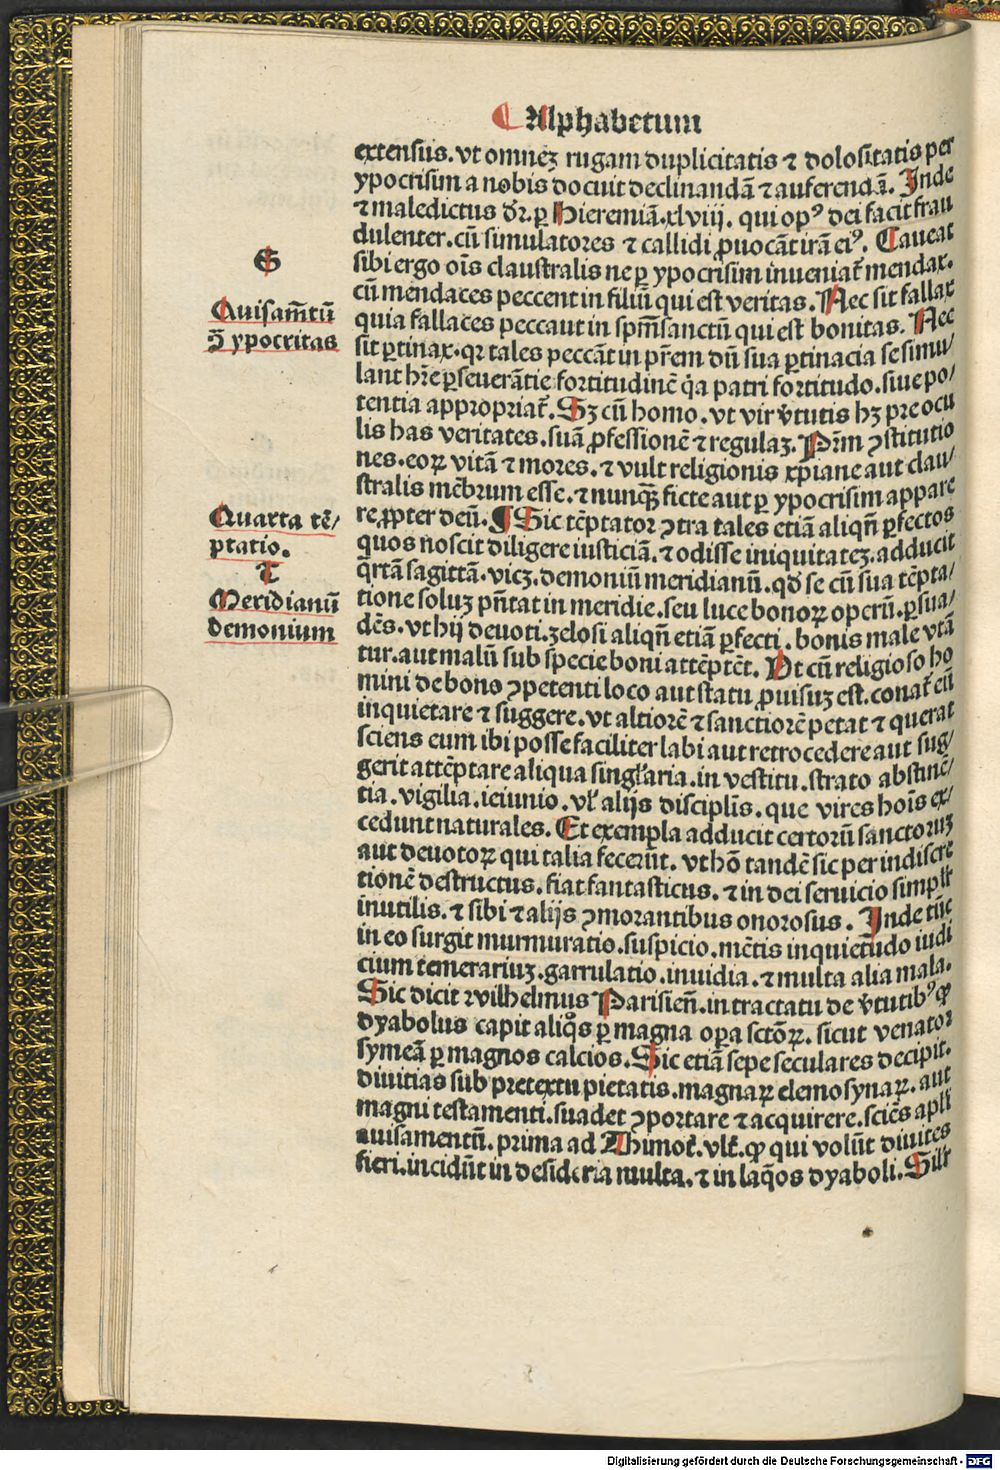 Alphabetum
extensus. vt omneꝫ rugam duplicitatis ⁊ dolositatis per
ypocrisim a nobis docuit declinandā ⁊ auferendā. Inde
⁊ maledictus dr̄. ꝑ Hieremiā. xlviij. qui opꝰ dei facit frau
dulenter. cū simulatores ⁊ callidi ꝓuocāt irā eiꝰ. Caueat
sibi ergo oīs claustralis ne ꝑ ypocrisim inueniat᷑ mendax.
cū mendaces peccent in filiū qui est veritas. Nec sit fallax
quia fallaces peccaut in spm̄sanctū qui est bonitas. Nec
sit ꝑtinax. qꝛ tales peccāt in pr̄em dū sua ꝑtinacia se simu/
lant hr̄e ꝑseuerātie fortitudinē q̇a patri fortitudo. siue po/
tentia appropriat᷑. Sꝫ cū homo. vt vir v̓tutis hꝫ pre ocu
lis has veritates. suā ꝓfessionē ⁊ regulaꝫ. Prīm ꝯstitutio
nes. eoꝝ vitā ⁊ mores. ⁊ vult religionis xp̄iane aut clau/
stralis mēbrum esse. ⁊ nunqꝫ ficte aut ꝑ ypocrisim appare
re ꝓpter deū. ¶ Sic tēptator ꝯtra tales etiā aliqn̄ ꝑfectos
quos noscit diligere iusticiā. ⁊ odisse iniquitateꝫ. adducit
q̄rtā sagittā. vicꝫ. demoniū meridianū. qd̓ se cū sua tēpta/
tione soluꝫ pn̄tat in meridie. seu luce bonoꝝ operū. ꝑsua/
dēs. vt hij deuoti. zelosi aliqn̄ etiā ꝑfecti. bonis male vtā
tur. aut malū sub specie boni attēptēt. Vt cū religioso ho
mini de bono ꝯpetenti loco aut statu ꝓuisuꝫ est. conat᷑ eū
inquietare ⁊ suggere. vt altiorē ⁊ sanctiorē petat ⁊ querat
sciens eum ibi posse faciliter labi aut retrocedere aut sug/
gerit attēptare aliqua singl̓aria. in vestitu. strato abstinē/
tia. vigilia. ieiunio. vl̓ alijs disciplīs. que vires hoīs ex/
cedunt naturales. Et exempla adducit certorū sanctoruꝫ
aut deuotoꝝ qui talia fecerūt. vt hō tandē sic per indiscre
tionē destructus. fiat fantasticus. ⁊ in dei seruicio simplr̄
inutilis. ⁊ sibi ⁊ alijs ꝯmorantibus onorosus. Inde tūc
in eo surgit murmuratio. suspicio. mētis inquietudo iudi
cium temerariuꝫ. garrulatio. inuidia. ⁊ multa alia mala.
Sic dicit wilhelmus Parisien̄. in tractatu de v̓tutibꝰ ꝙ
dyabolus capit aliq̊s ꝑ magna oꝑa sctōꝝ. sicut venator
symeā ꝑ magnos calcios. Sic etiā sepe seculares decipit.
diuitias sub pretextu pietatis. magnaꝝ elemosynaꝝ. aut
magni testamenti. suadet ꝯportare ⁊ acquirere. sciēs apl̓i
auisamentū. prima ad Thimot̓. vlt̓. ꝙ qui volūt diuites
fieri. incidūt in desideria multa. ⁊ in laq̄os dyaboli. Silr̄
S
Auisam̄tū
ꝯ̄ ypocritas
Quarta tē/
ptatio.
T
Meridianū
demonium
Digitalisierung gefördert durch die Deutsche Forschungsgemeinschaft - DFG